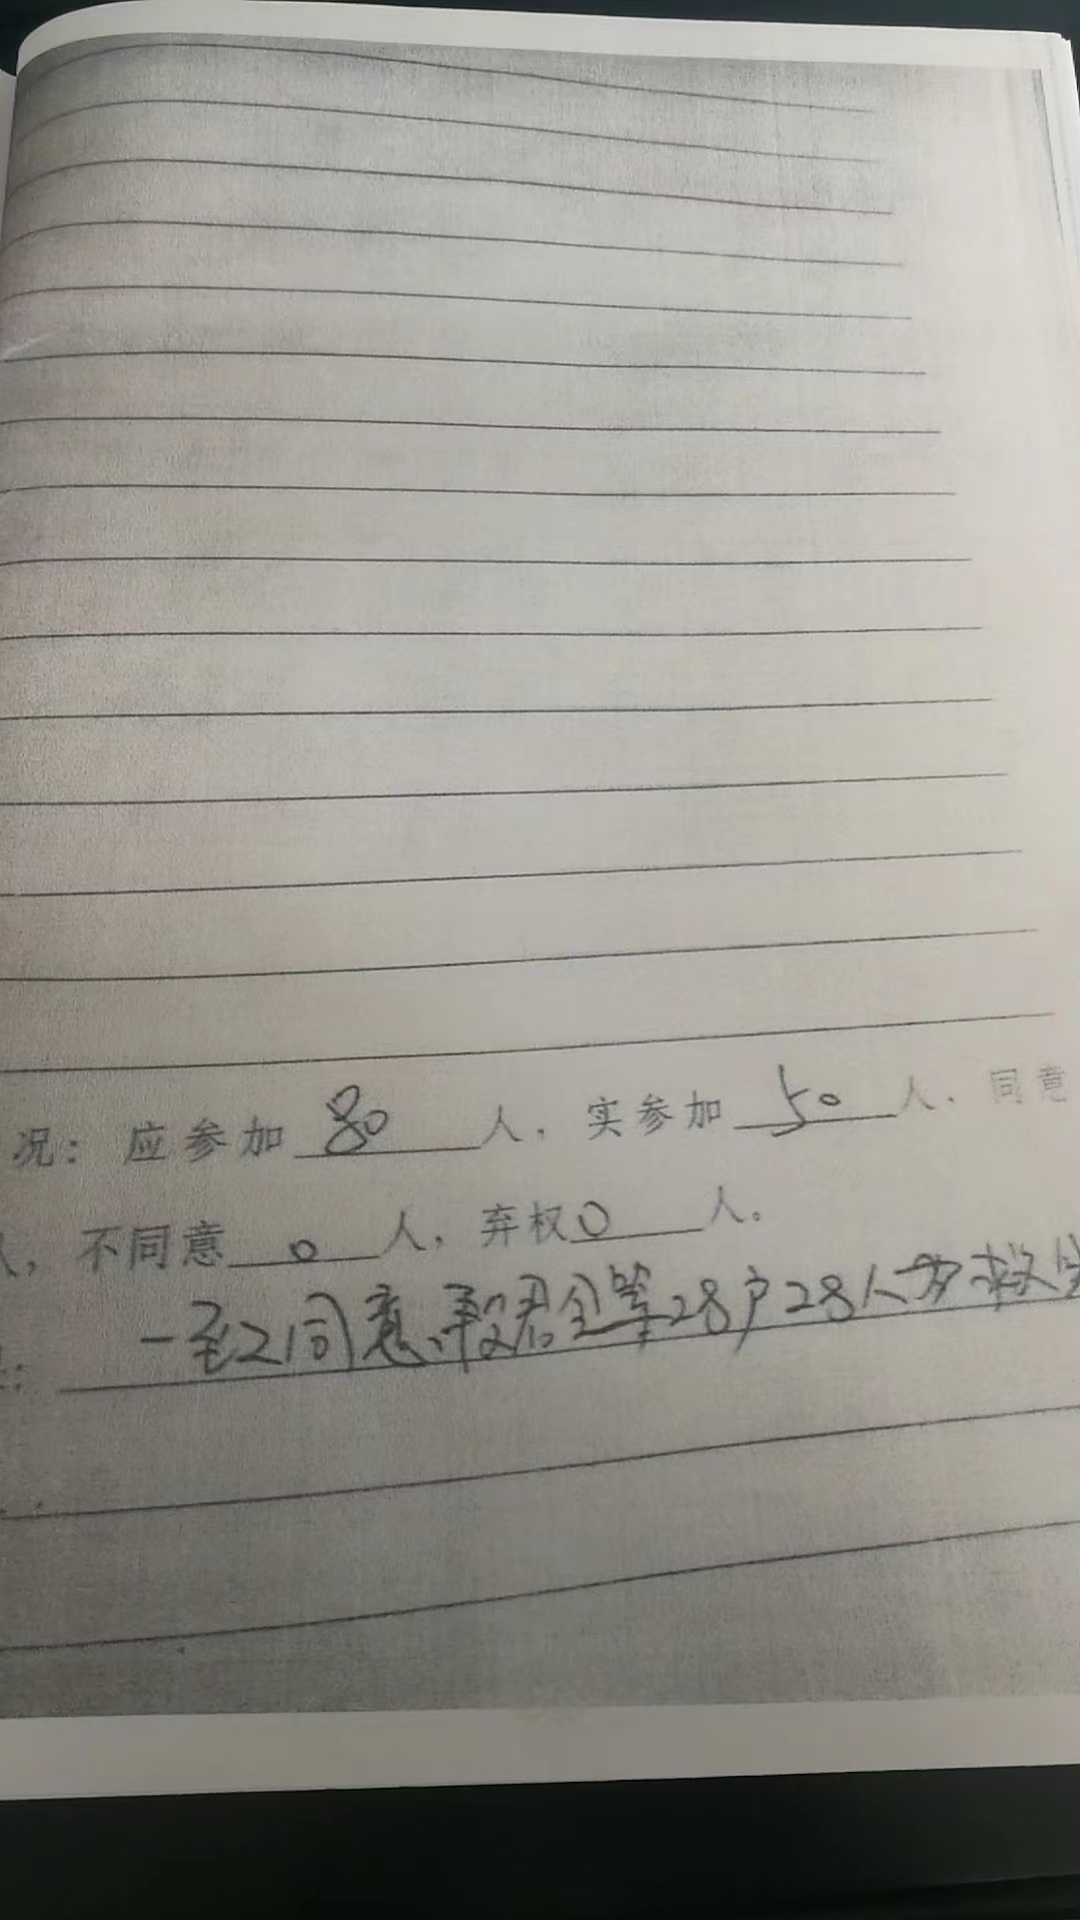 况: 应参加 80 人, 实参加 50 人, 同意
人, 不同意 0 人, 弃权 0 人。
一至同意 殷君全等28户28人